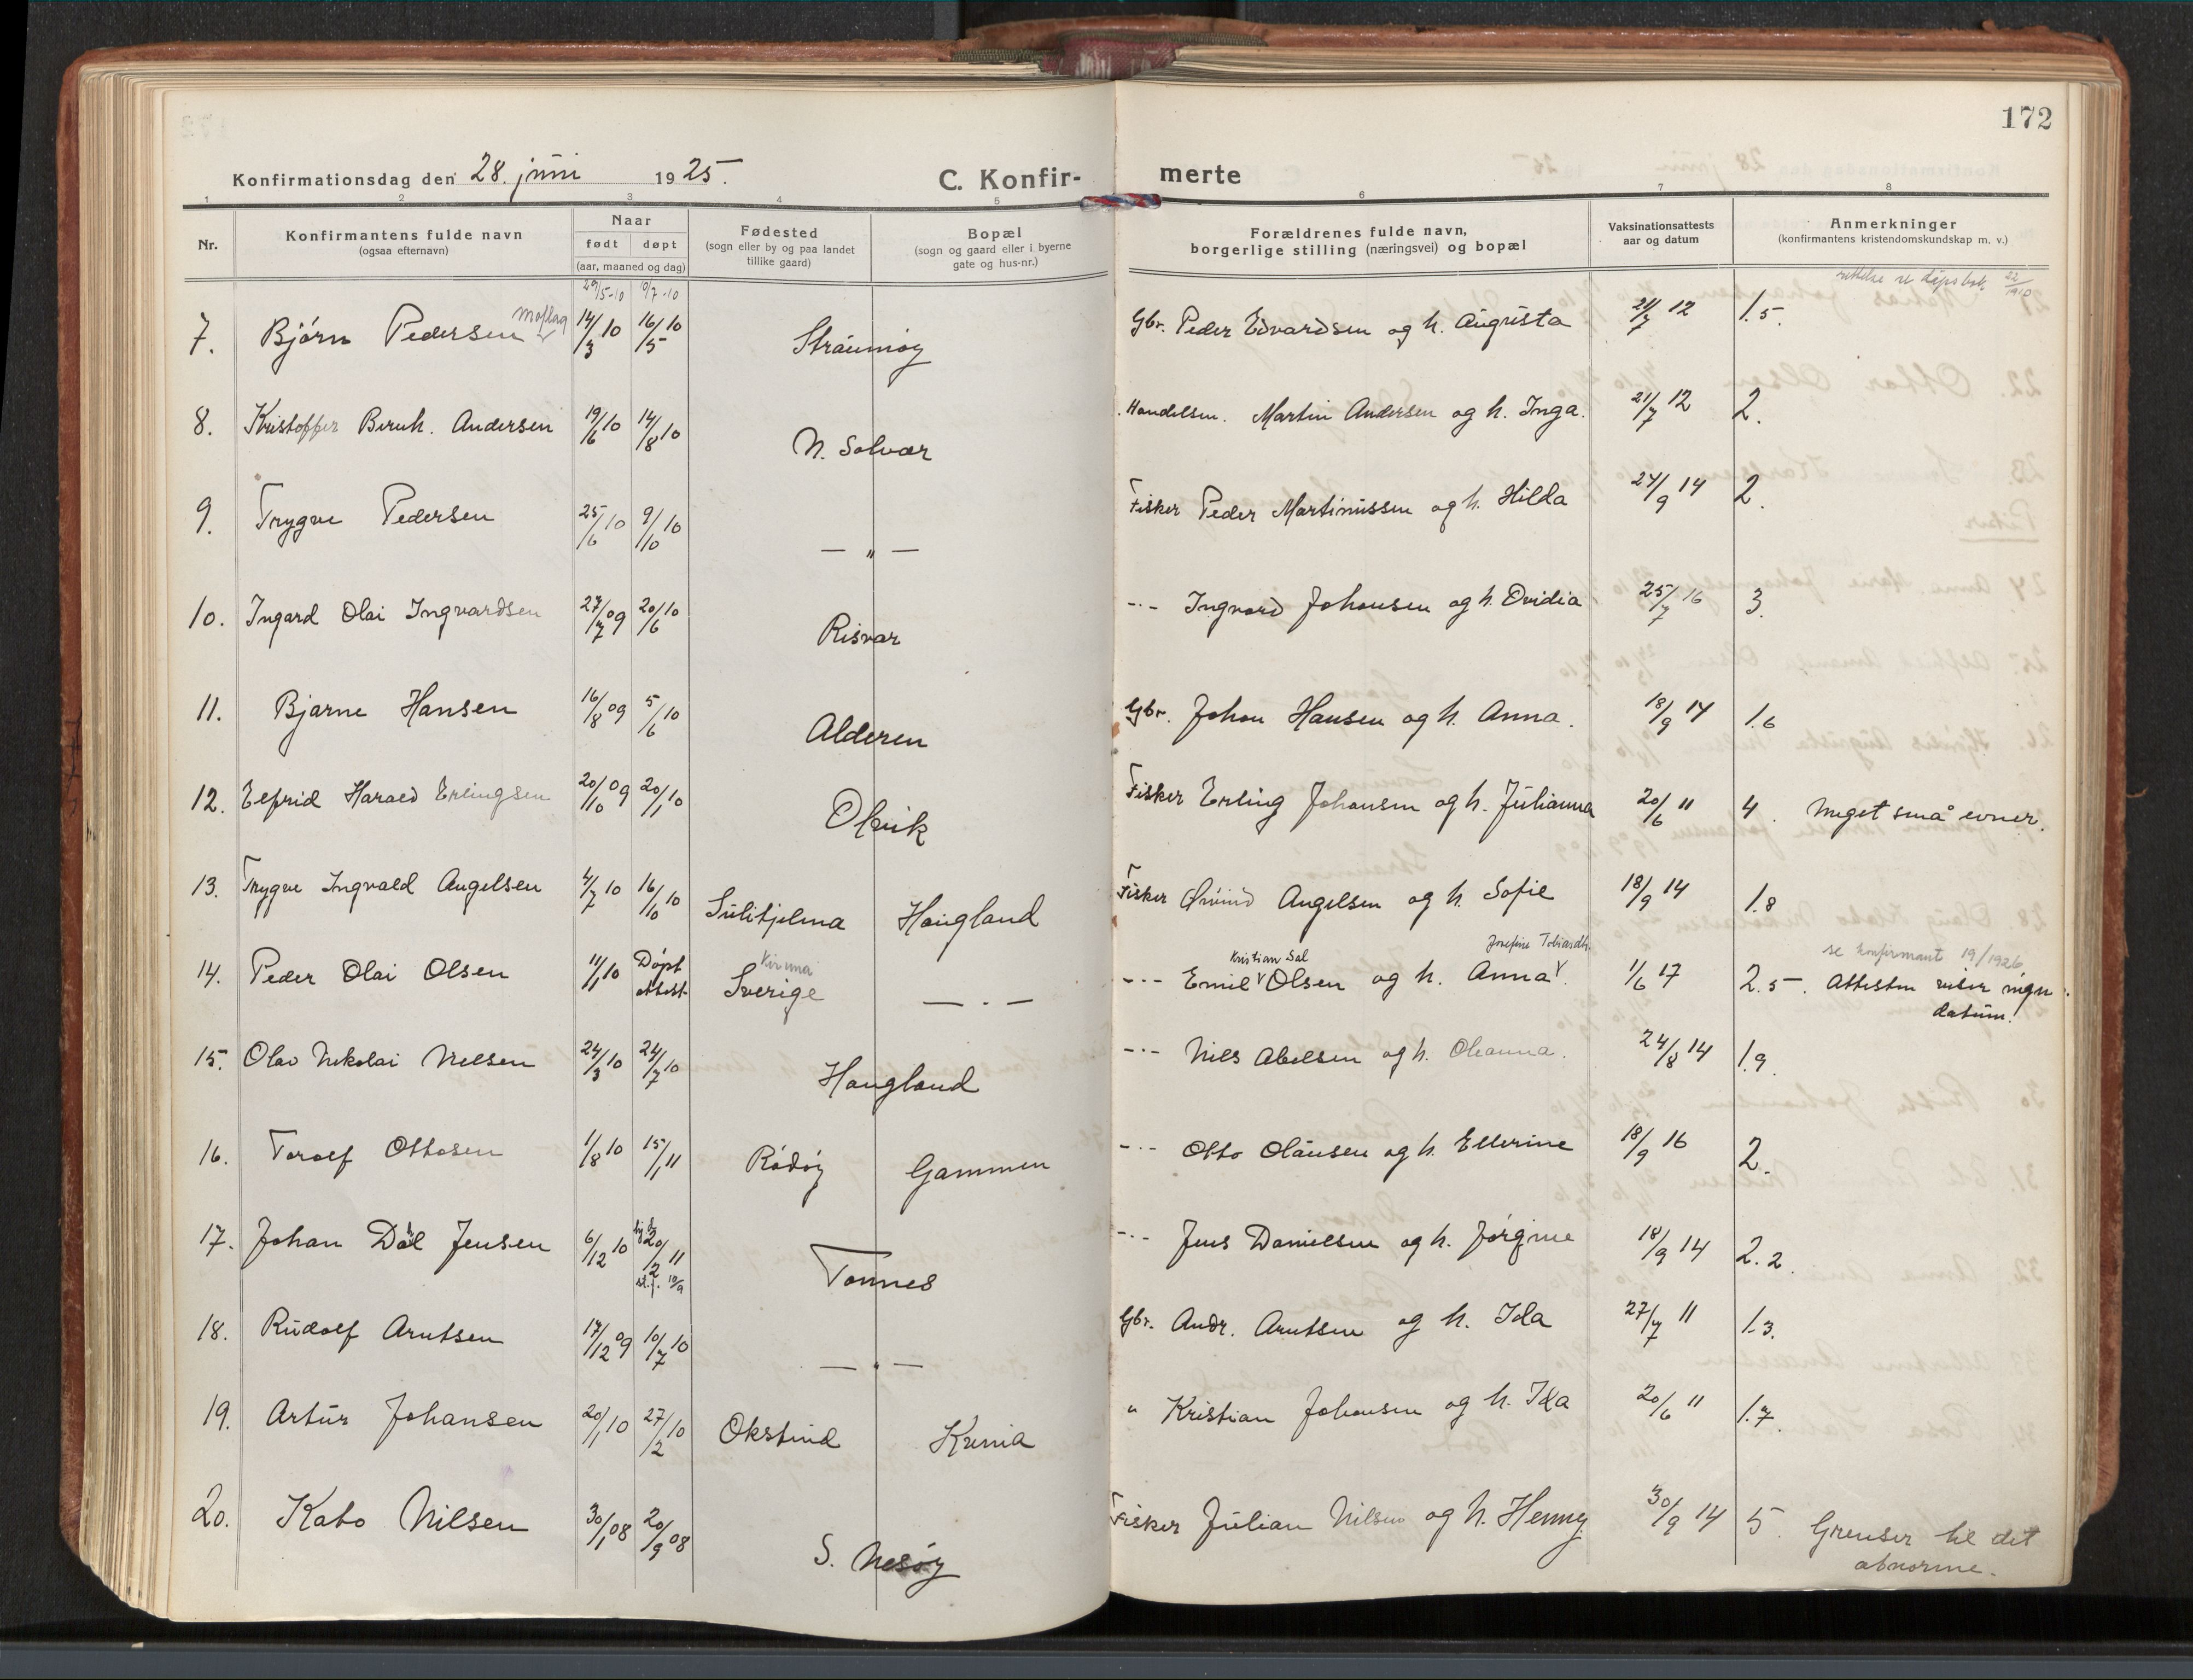 172
Konfirmationsdag den 28. juni 1925.
C. Konfir-merte
1 2 3 4 5 6 7 8
Nr.
Konfirmantens fulde navn
(ogsaa efternavn)
Naar
født døpt
(aar, maaned og dag)
Fødested
(sogn eller by og paa landet
tillike gaard)
Bopæl
(sogn og gaard eller i byerne
gate og hus-nr.)
Forældrenes fulde navn,
borgerlige stilling (næringsvei) og bopæl
Vaksinationsattests
aar og datum
Anmerkninger
(konfirmantens kristendomskundskap m. v.)
29/5-10 9/7-10 rettelse se dåpsbok 22/1910
7. Bjørn Pedersen Moflag 14/3 10 16/5 10 Straumøy Gbr. Peder Edvardsen og h. Augusta 21/7 12 1.5.
8. Kristoffer Bernh. Andersen 19/6 10 14/8 10 N. Solvær Handelsm. Martin Andersen og h. Inga. 21/7 12 2.
9. Trygve Pedersen 25/6 10 9/10 10 — " — Fisker Peder Martinussen og h. Hilda 24/9 14 2.
10. Ingard Olai Ingvardsen 27/7 09 20/6 10 Risvær -·- Ingvard Johansen og h. Ovidia 25/7 16 3.
11. Bjarne Hansen 16/8 09 5/6 10 Alderen Gbr. Johan Hansen og h. Anna. 18/9 14 1.6
12. Elfrid Harald Erlingsen 20/10 09 20/1 10 Olvik Fisker Erling Johansen og h. Julianna 20/6 11 4. Meget små evner.
13. Trygve Ingvald Angelsen 4/7 10 16/10 10 Sulitjelma Haugland Fisker Øivind Angelsen og h. Sofie 18/9 14 1.8
Kiruna Kristian Sal Josefine Tobiasdtr. se konfirmant 19/1926
14. Peder Olai Olsen 11/1 10 Døpt attest Sverige — . — -·- Emil Olsen og h. Anna. 1/6 17 2.5. Attesten viser ingen
datum!
15. Olav Nikolai Nielsen 24/3 10 24/7 10 Haugland -·- Nils Abelsen og h. Oleanna. 24/8 14 1.9.
16. Torolf Ottosen 1/8 10 15/1 11 Rødøy Gammen -·- Otto Olausen og h. Ellerine 18/9 16 2.
17. Johan Dåhl Jensen 6/12 10 hj.d. 20/2 11 st.f. 10/9 Tonnes -·- Jens Danielsen og h. Jørgine 18/9 14 2.2.
18. Rudolf Arntsen 17/12 09 10/7 10 — " — Gbr. Andr. Arntsen og h. Ida 27/7 11 1.3.
19. Artur Johansen 20/1 10 27/2 10 Okstind Kvina " Kristian Johansen og h. Ida 20/6 11 1.7.
20. Kato Nilsen 30/1 08 20/9 08 S. Nesøy Fisker Julian Nilsen og h. Henny. 30/9 14 5. Grenser til det
abnorme.